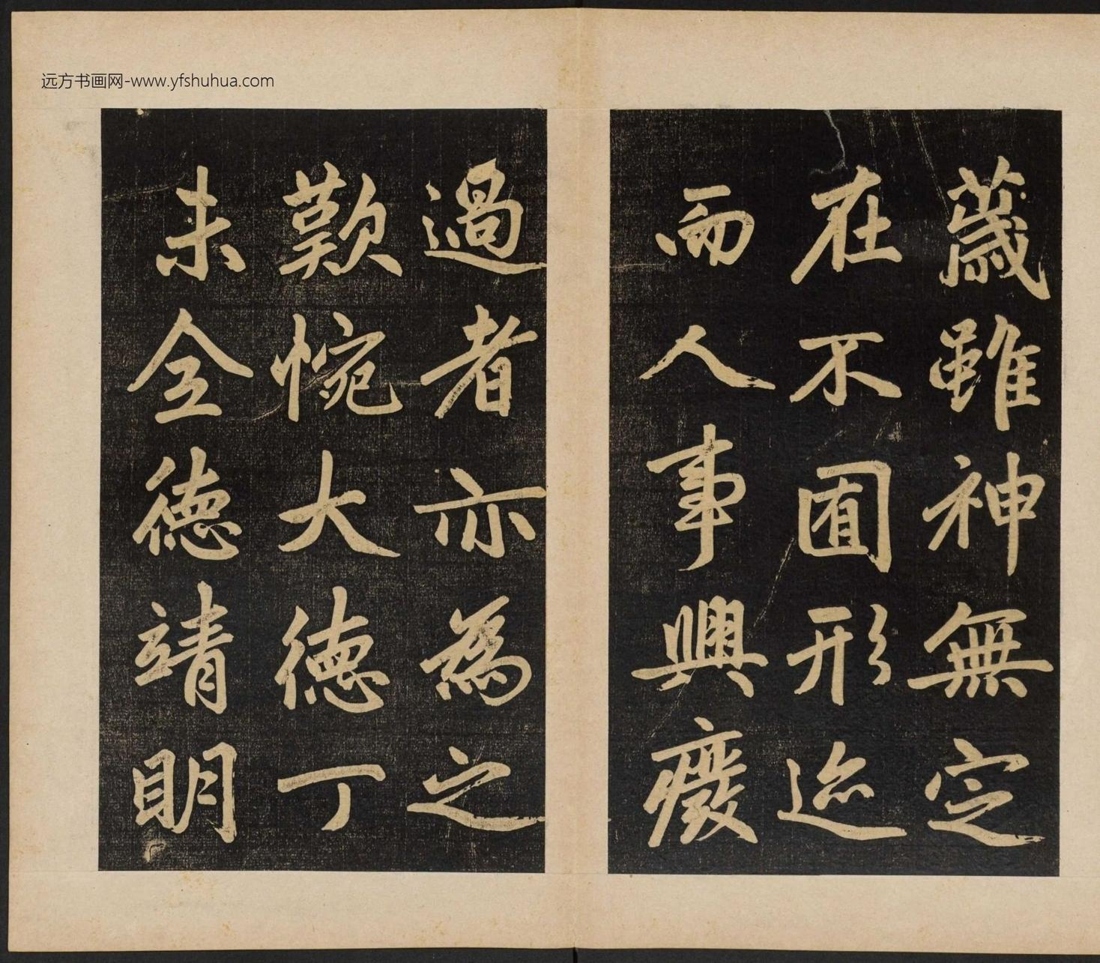 远方书画网-www.yfshuhua.com
蕆雖神無定
在不囿形迹
而人事興廢
過者亦為之
歎惋大德丁
未全德靖明